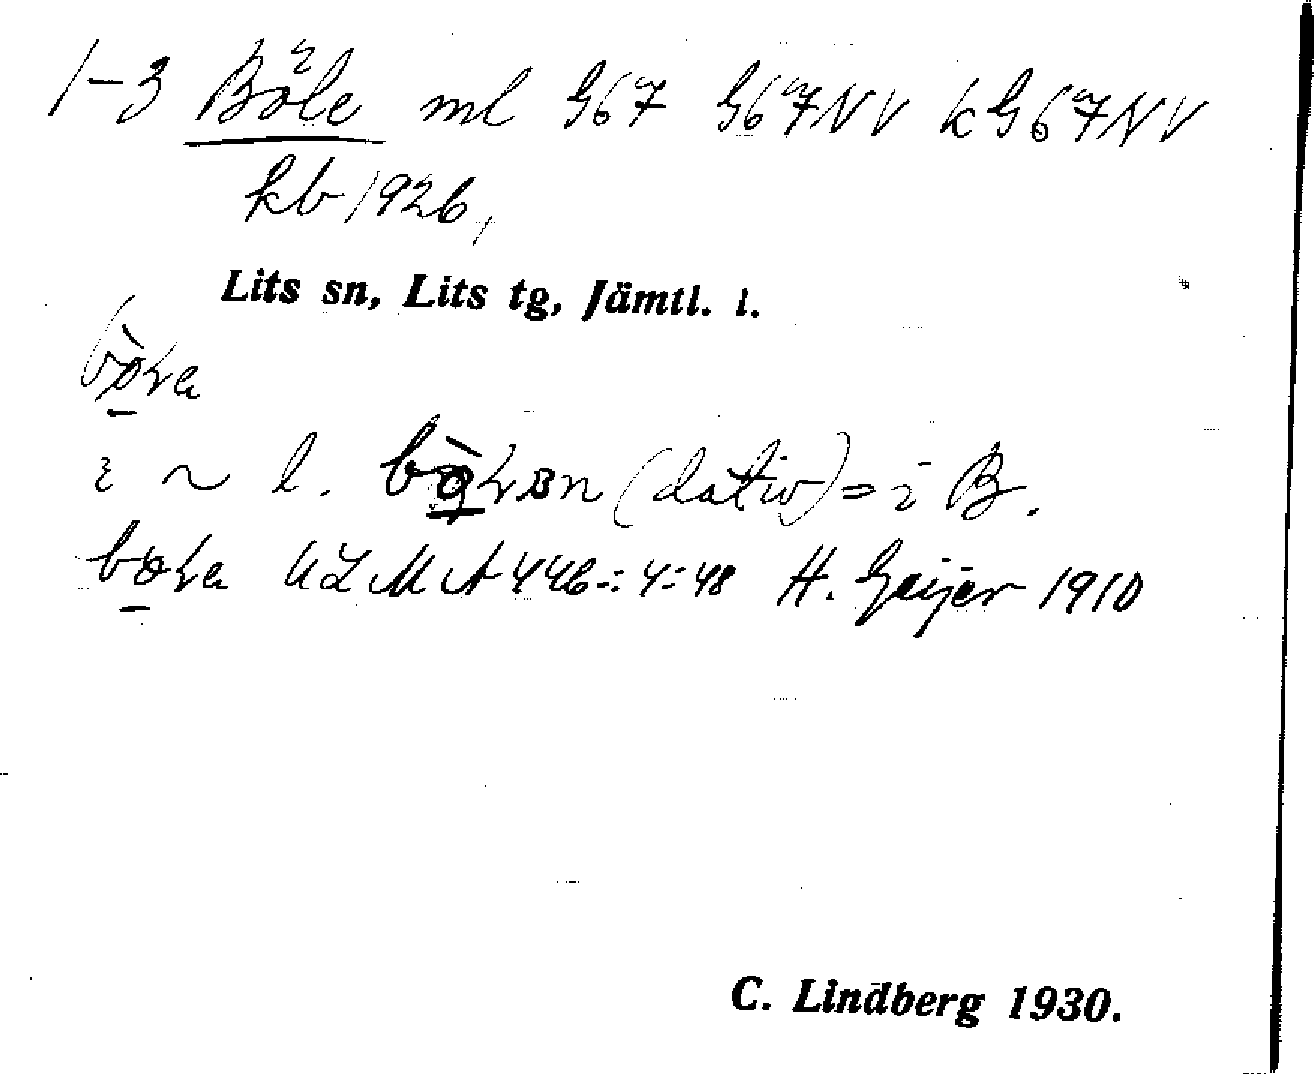 1-3 Böle ml G67 G67NV kG67NV
kb 1926,
Lits sn, Lits tg, Jämtl. l.
i ~ l. (dativ) = i B.
ULMA 446:4:48 H. Geijer 1910
C. Lindberg 1930.